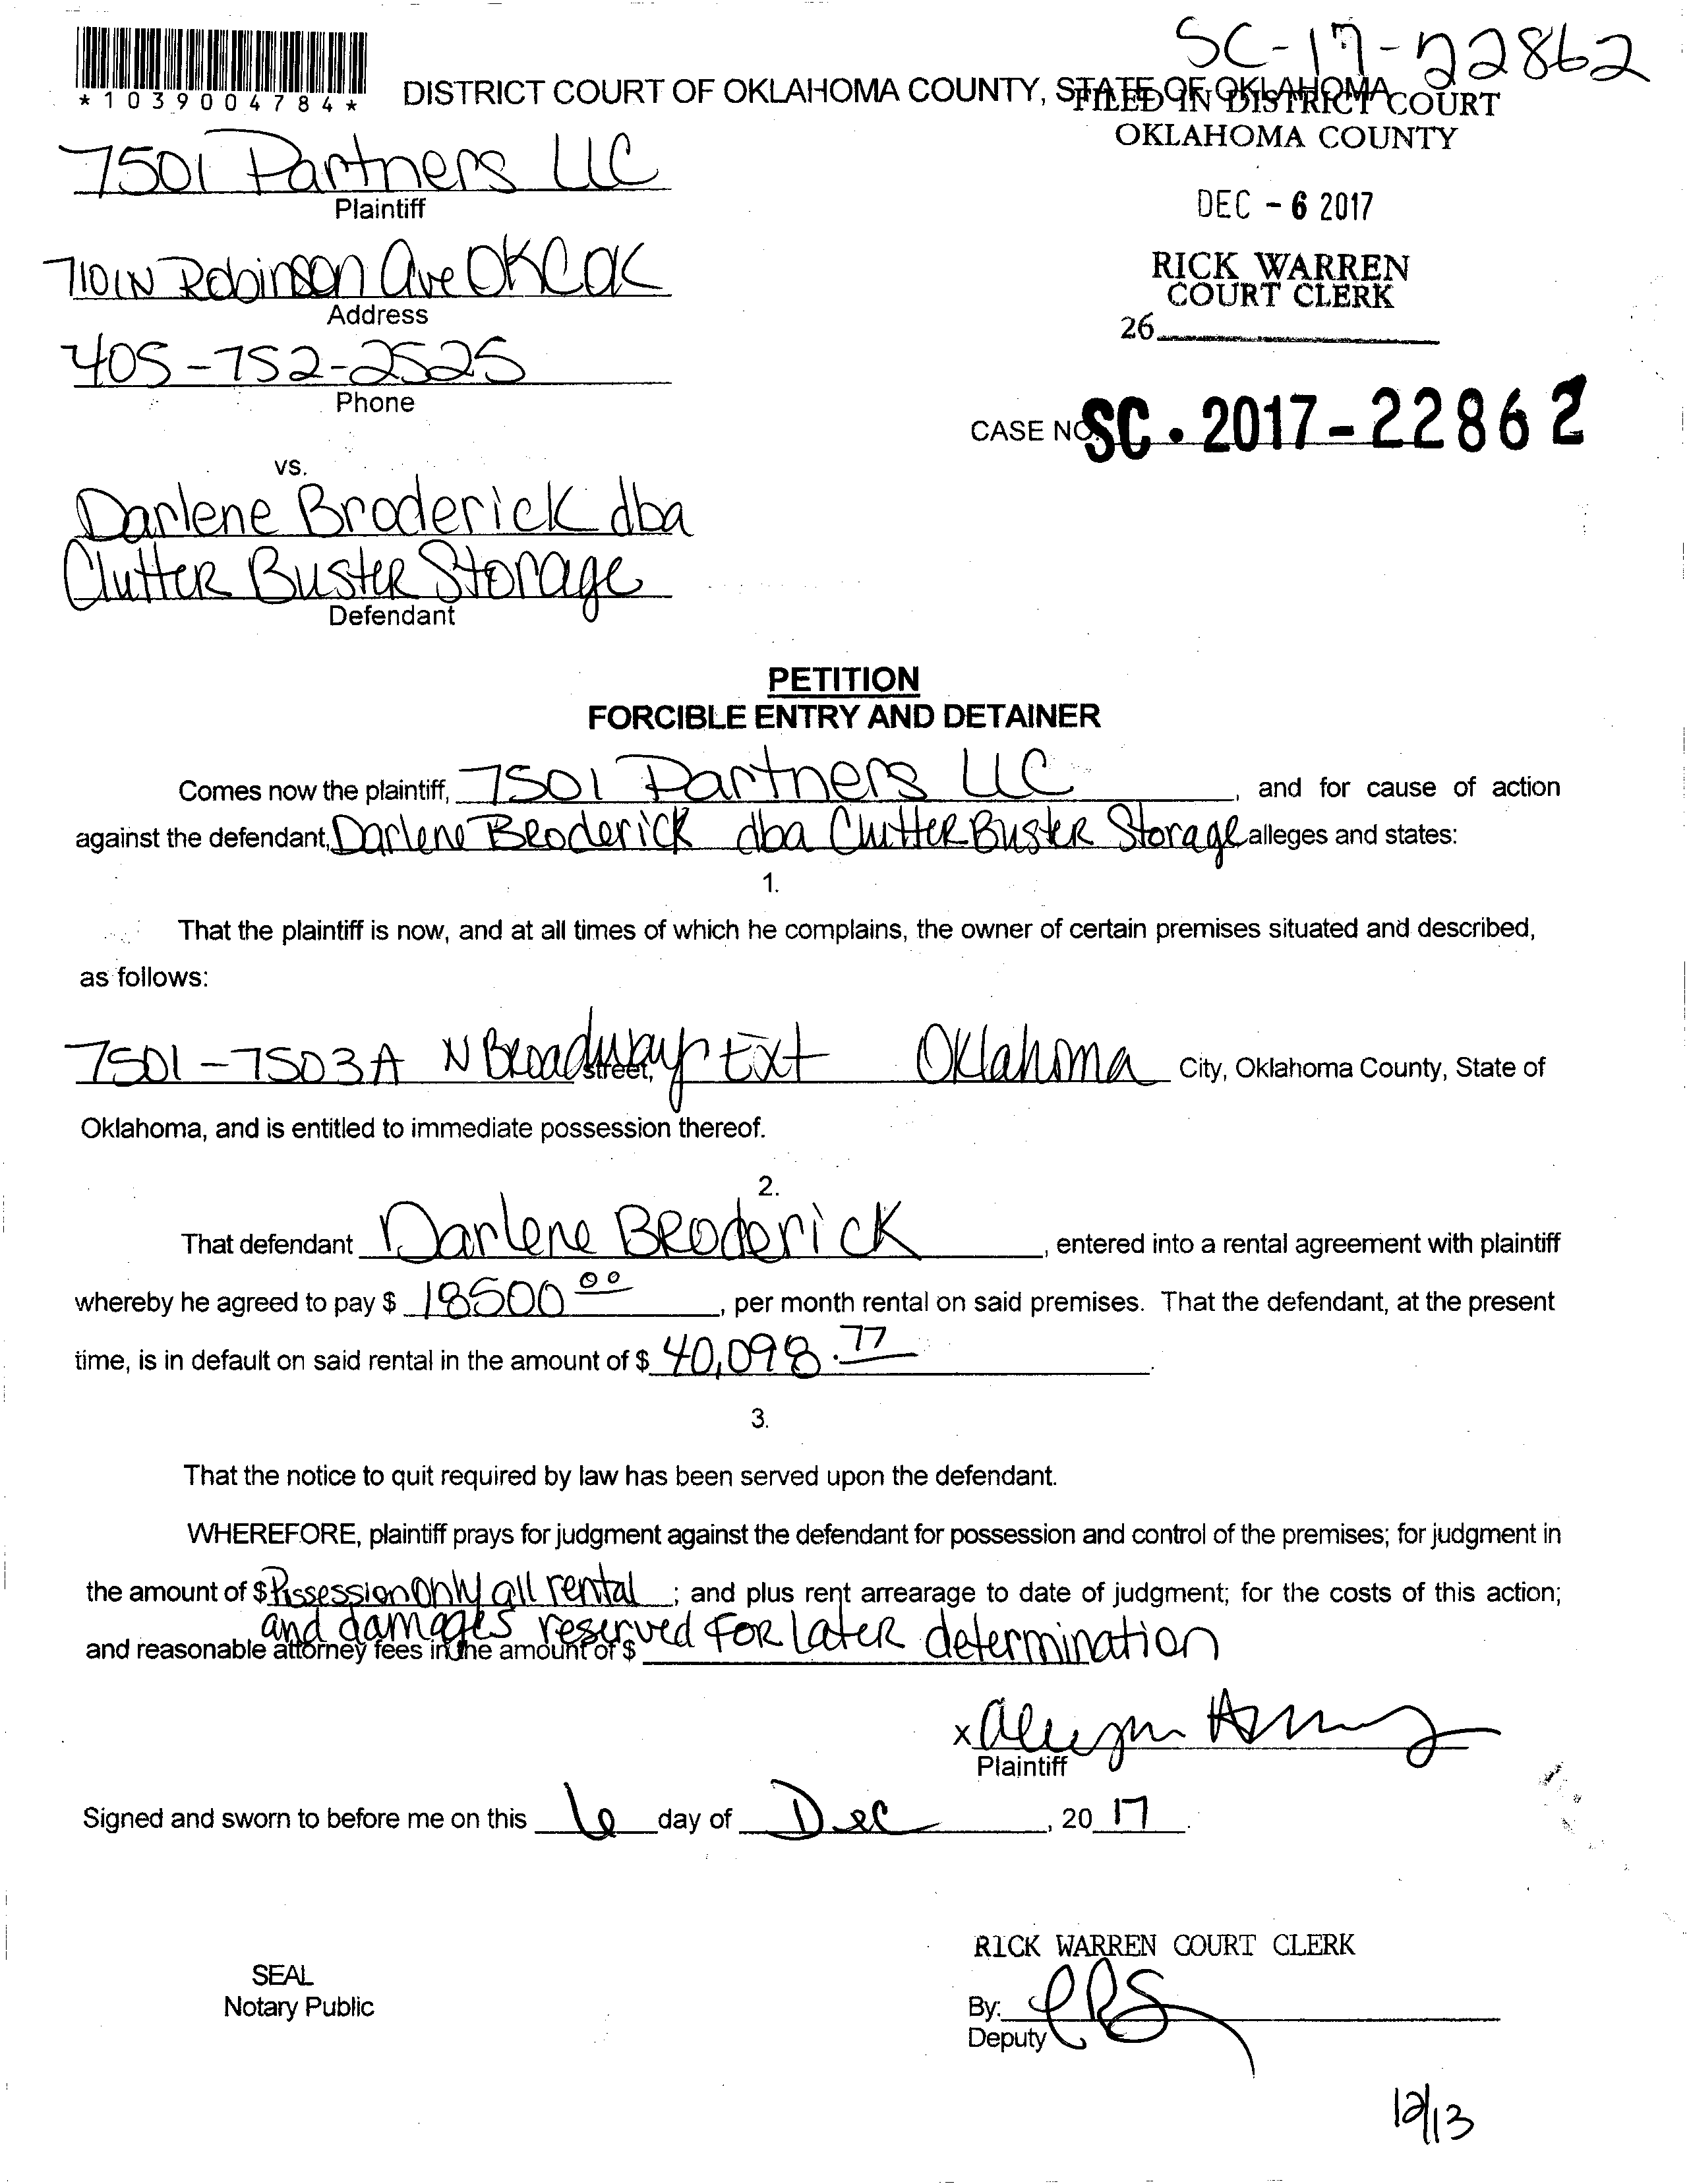 SC-17-22862
*1039004784*
DISTRICT COURT OF OKLAHOMA COUNTY, STATE OF OKLAHOMA
FILED IN DISTRICT COURT
OKLAHOMA COUNTY
7501 Partners LLC
Plaintiff
DEC - 6 2017
7101 N Robinson Ave OKC OK
Address
RICK WARREN
COURT CLERK
26
405-752-2525
Phone
CASE NO. SC - 2017 - 22862
vs.
Darlene Broderick dba
Clutter Buster Storage
Defendant
PETITION
FORCIBLE ENTRY AND DETAINER
Comes now the plaintiff, 7501 Partners LLC, and for cause of action
against the defendant, Darlene Broderick dba Clutter Buster Storage alleges and states:
1.
That the plaintiff is now, and at all times of which he complains, the owner of certain premises situated and described,
as follows:
7501-7503A N Broadway Ext street, Oklahoma City, Oklahoma County, State of
Oklahoma, and is entitled to immediate possession thereof.
2.
That defendant Darlene Broderick, entered into a rental agreement with plaintiff
whereby he agreed to pay $ 18500 00, per month rental on said premises. That the defendant, at the present
time, is in default on said rental in the amount of $ 40,098.77.
3.
That the notice to quit required by law has been served upon the defendant.
WHEREFORE, plaintiff prays for judgment against the defendant for possession and control of the premises; for judgment in
the amount of $ Possession Only all rental; and plus rent arrearage to date of judgment; for the costs of this action;
and damages reserved For Later determination
and reasonable attorney fees in the amount of $
x
Plaintiff
Signed and sworn to before me on this 6 day of Dec, 20 17.
RICK WARREN COURT CLERK
SEAL
Notary Public
By:
Deputy
12/13